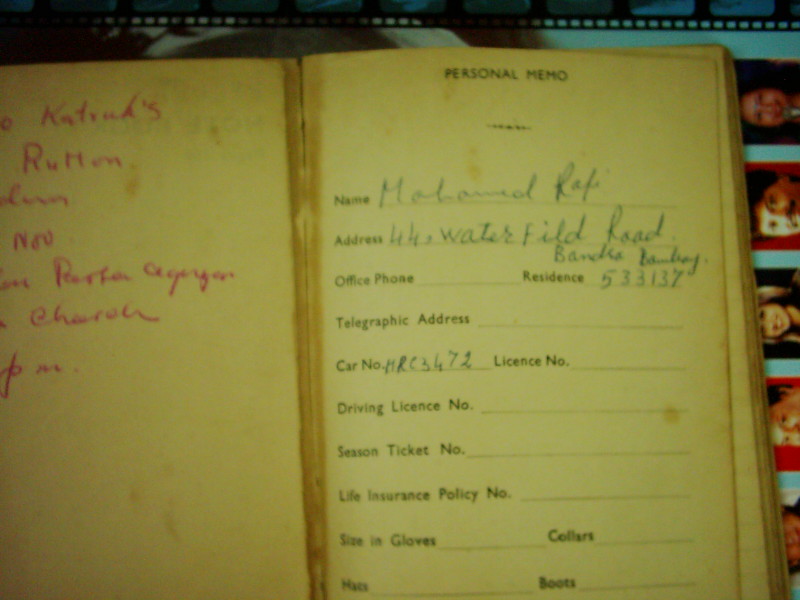 o Katrak's
Rutton
Nov
Church
p m.
PERSONAL MEMO
Name Mohamed Rafi
Address 44, Water Fild Road.
Bandra Bombay.
Office Phone Residence 533137
Telegraphic Address
Car No. MRC3472 Licence No.
Driving Licence No.
Season Ticket No.
Life Insurance Policy No.
Size in Gloves Collars
Hats Boots